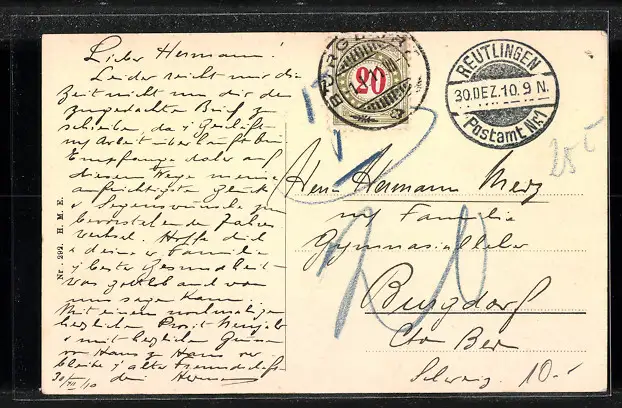 Lieber Hermann!
Leider reicht mir die
Zeit nicht um dir den
zugedachten Brief zu
schreiben, da ich Geschäft
Arbeit überhaupt bin
Empfange daher auf
diesem Wege meine
aufrichtigsten Glück
& Segenswünsche zum
bevorstehenden Jahres
wechsel. Hoffe dich
& deine Familie
bester Gesundheit
was gottlob auch von
uns sagen kann.
Mit einem nochmaligen
herzlichen Prosit Neujahr
& mit herzlichen Grüssen
von Haus zu Haus ver
bleibe in alter Freundschaft
30/XII/10 dein Hermann
Nr. 292. H. M. E.
BURGDORF
20
REUTLINGEN
30.DEZ.10.9 N.
Postamt Nr.1
Herrn Hermann Merz
Familie
Gymnasiallehrer
Burgdorf
Cto Bern
Schweiz
10.-
20